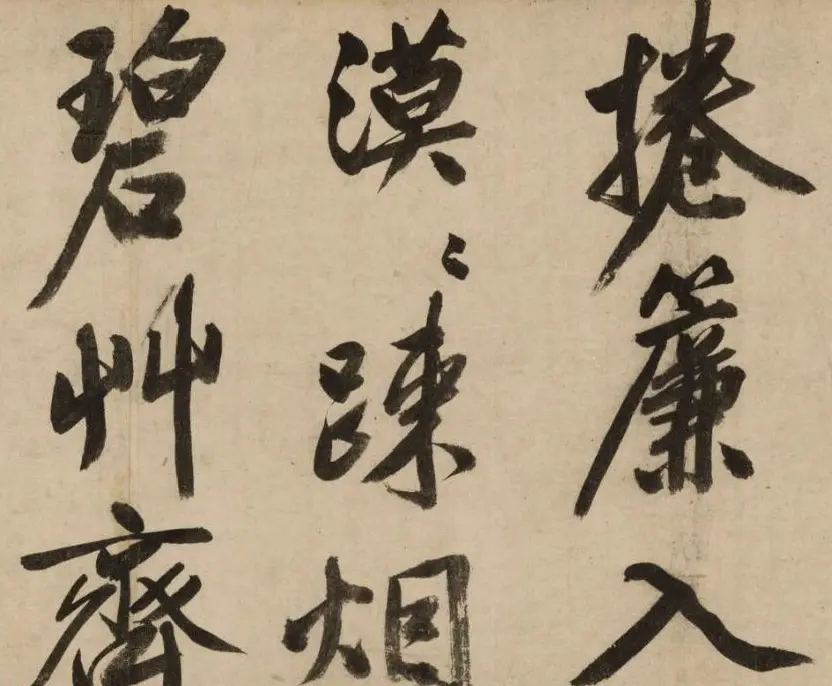 捲簾入
漠〻踈烟
碧艸齊